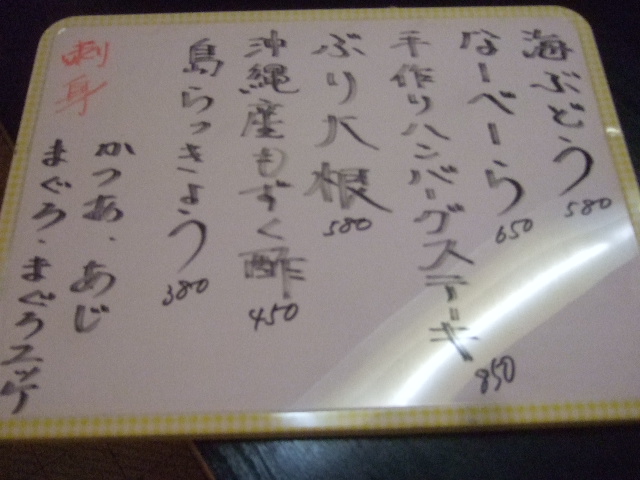 海ぶどう 580
なーべーら 650
手作りハンバーグステーキ 850
ぶり大根 580
沖縄産もずく酢 450
島らっきょう 380
刺身
かつお、あじ
まぐろ・まぐろユッケ